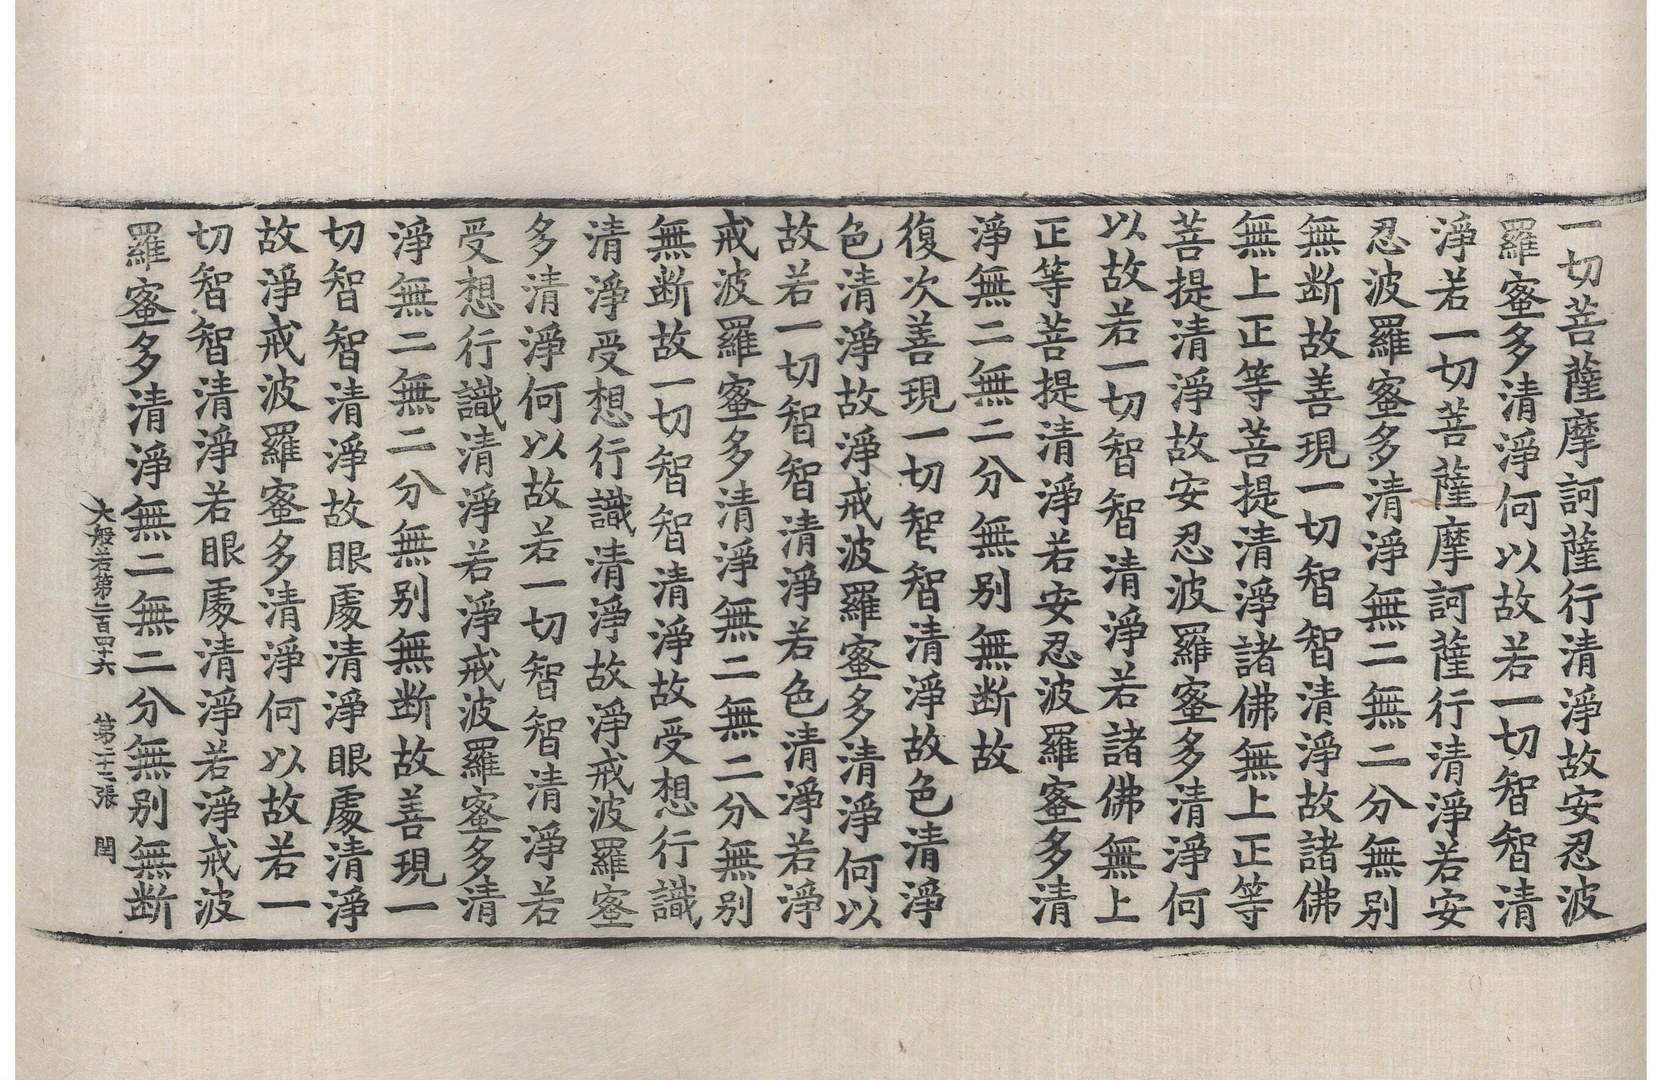 一切菩薩摩訶薩行清淨故安忍波
羅蜜多清淨何以故若一切智智清
淨若一切菩薩摩訶薩行清淨若安
忍波羅蜜多清淨無二無二分無別
無断故善現一切智智清淨故諸佛
無上正等菩提清淨諸佛無上正等
菩提清淨故安忍波羅蜜多清淨何
以故若一切智智清淨若諸佛無上
正等菩提清淨若安忍波羅蜜多清
淨無二無二分無別無断故
復次善現一切智智清淨故色清淨
色清淨故淨戒波羅蜜多清淨何以
故若一切智智清淨若色清淨若淨
戒波羅蜜多清淨無二無二分無別
無断故一切智智清淨故受想行識
清淨受想行識清淨故淨戒波羅蜜
多清淨何以故若一切智智清淨若
受想行識清淨若淨戒波羅蜜多清
淨無二無二分無別無断故善現一
切智智清淨故眼處清淨眼處清淨
故淨戒波羅蜜多清淨何以故若一
切智智清淨若眼處清淨若淨戒波
羅蜜多清淨無二無二分無別無断
大般若第二百四十六 第二十二張 閏